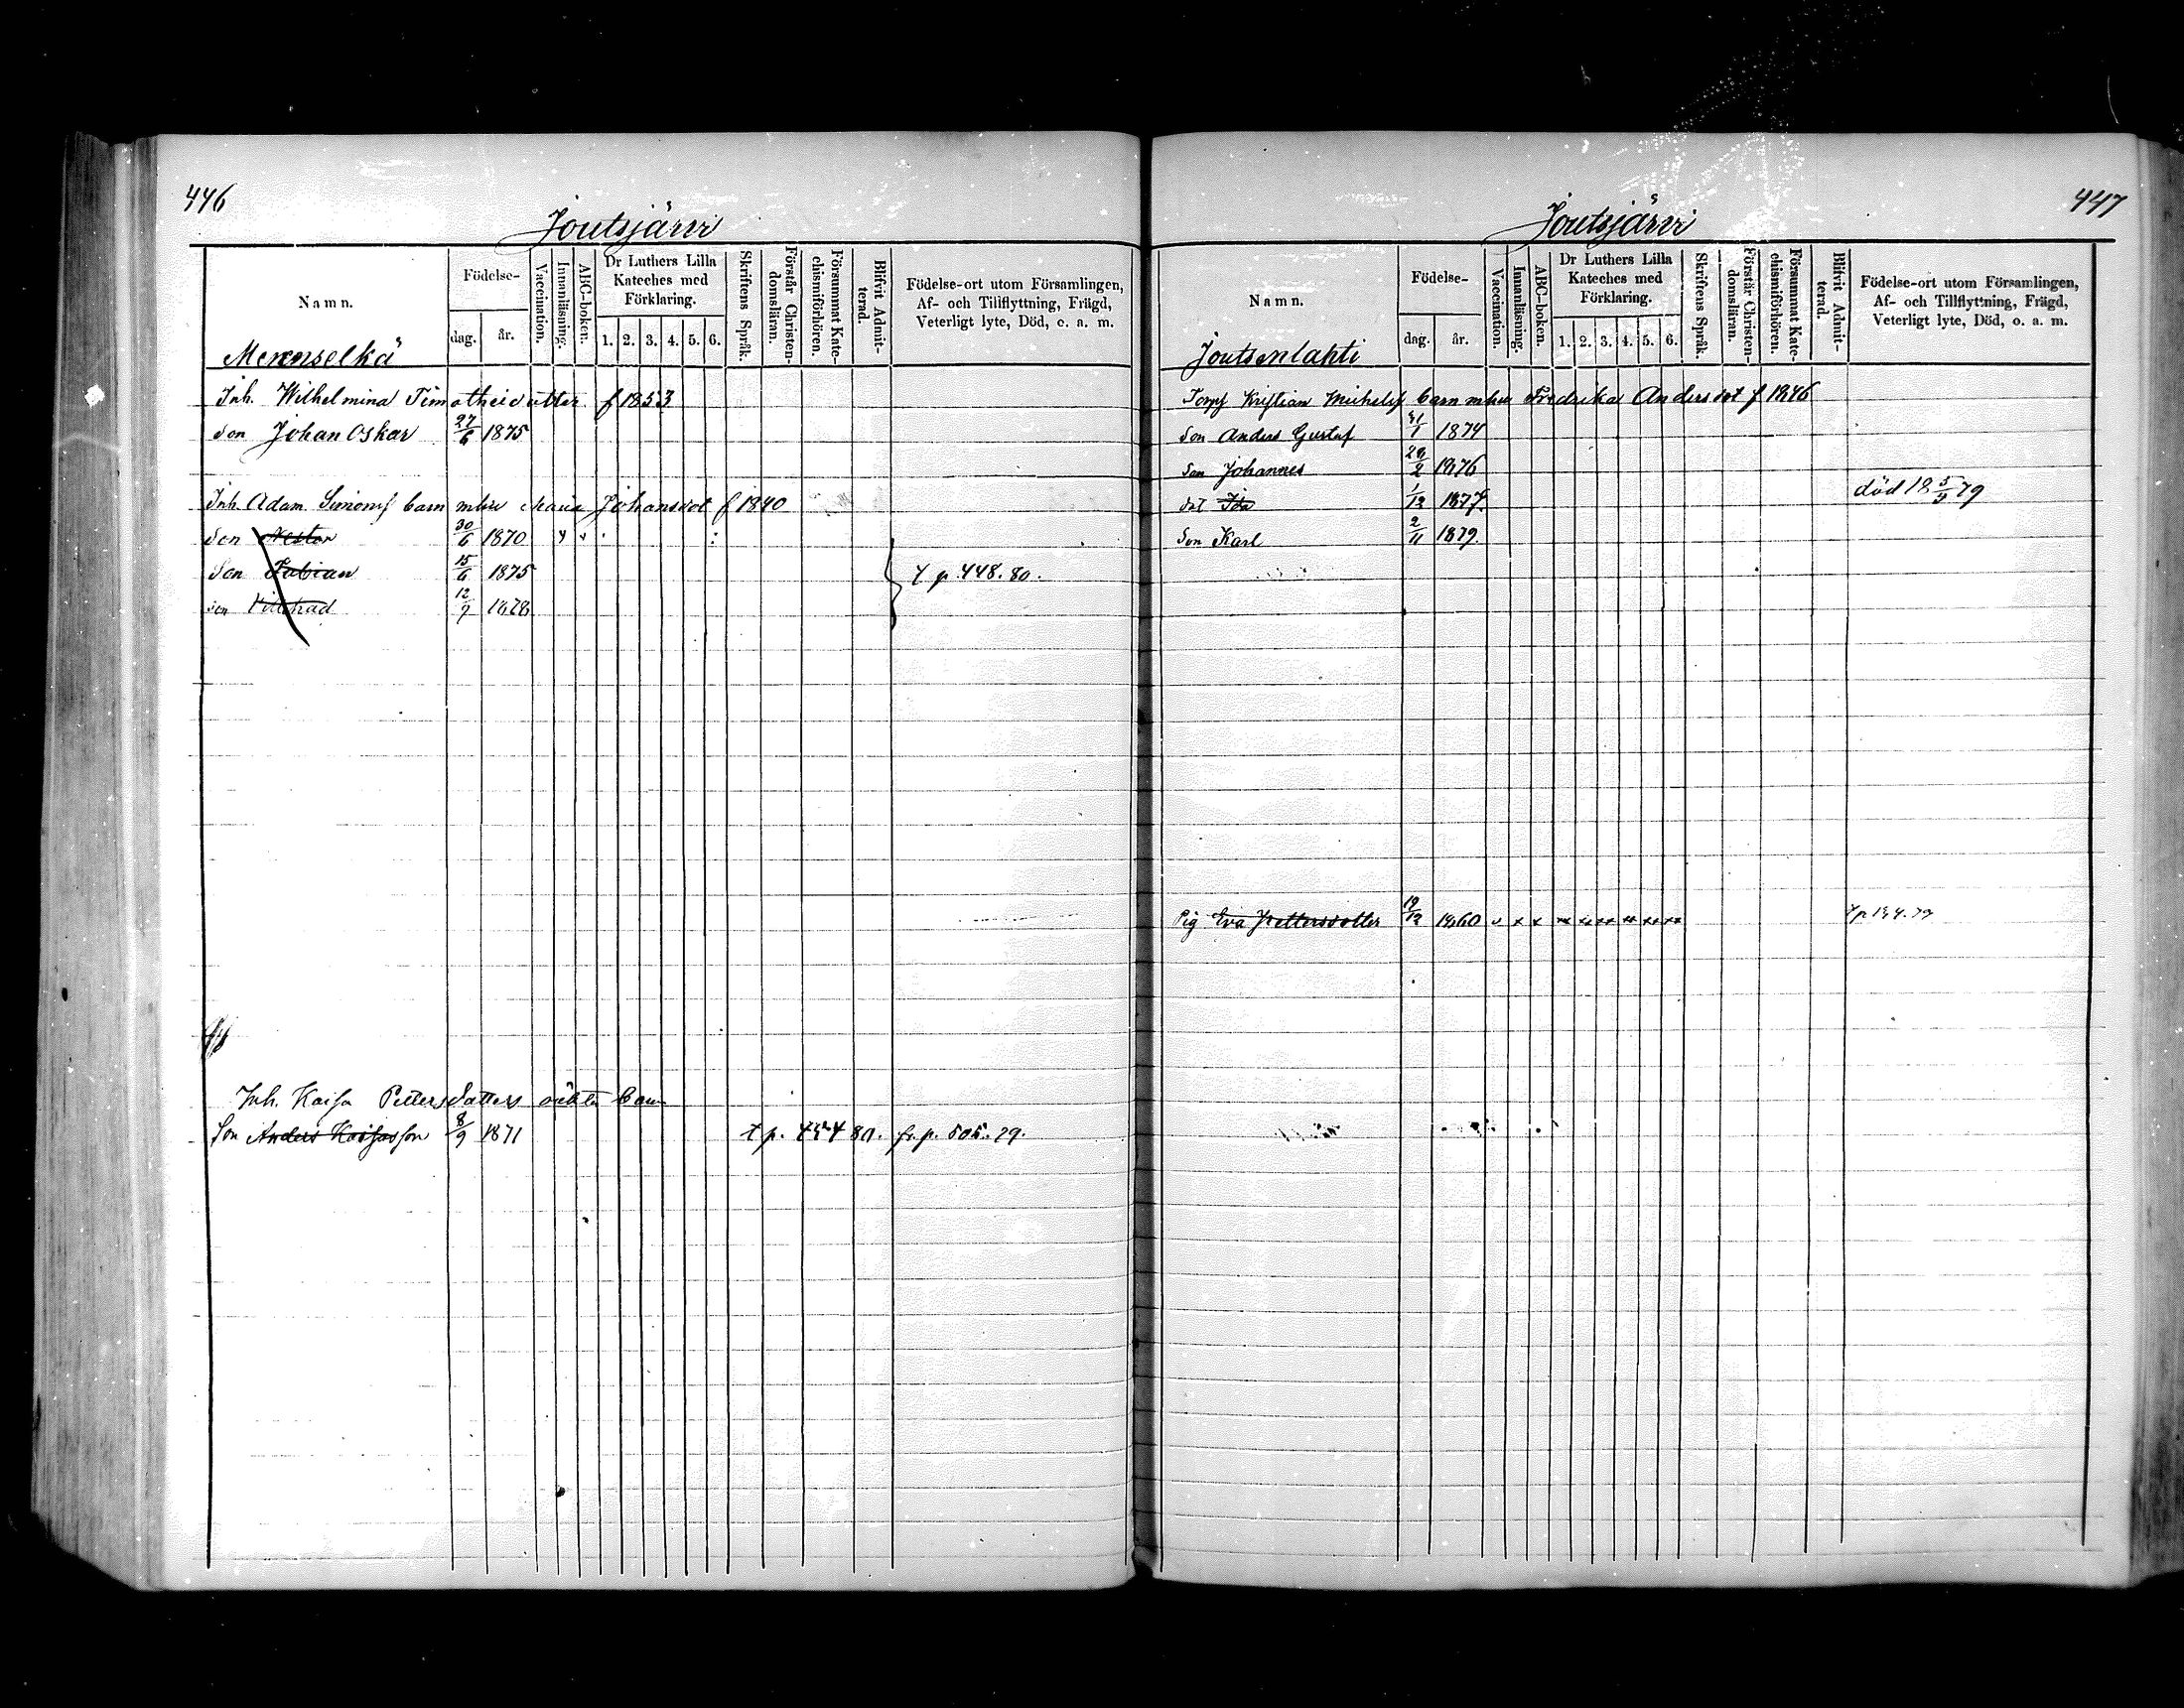 446
Joutsjärvi
Namn. Födelse- dag. år. Vaccination. Innanläsning. ABC-boken. Dr Luthers Lilla Kateches med Förklaring. 1. 2. 3. 4. 5. 6. Skriftens Språk. Förstår Christendomsläran. Försummat Katechismiförhören. Blifvit Admitterad. Födelse-ort utom Församlingen, Af- och Tillflyttning, Frägd, Veterligt lyte, Död, o. a. m.
Inh. Wilhelmina f 1853
Son Johan Oskar 27/6 1875
Inh. Adam Simonss barn mhu Maria Johansdot f 1840
Son Nestor 30/6 1870
Son Fabian 15/6 1875 t p. 448. 80.
son 12/9 1878
Inh. Kaisa Pettersdatters oäkta barn
Son Anders Kaisasson 8/9 1871 t p. 454 80. fr. p. 505. 79.
447
Joutsjärvi
Namn. Födelse- dag. år. Vaccination. Innanläsning. ABC-boken. Dr Luthers Lilla Kateches med Förklaring. 1. 2. 3. 4. 5. 6. Skriftens Språk. Förstår Christendomsläran. Försummat Katechismiförhören. Blifvit Admitterad. Födelse-ort utom Församlingen, Af- och Tillflyttning, Frägd, Veterligt lyte, Död, o. a. m.
Joutsenlahti
Torp Kristian Michelss barn mhu Fredrika Andersdot f 1846
Son Anders Gustaf 1874
Son Johannes 1876
dot Ida 1/12 1877. död 18 5/9 79
Son Karl 2/11 1879.
Pig Eva Pettersdotter 19/12 1860 v x x x x x x x x